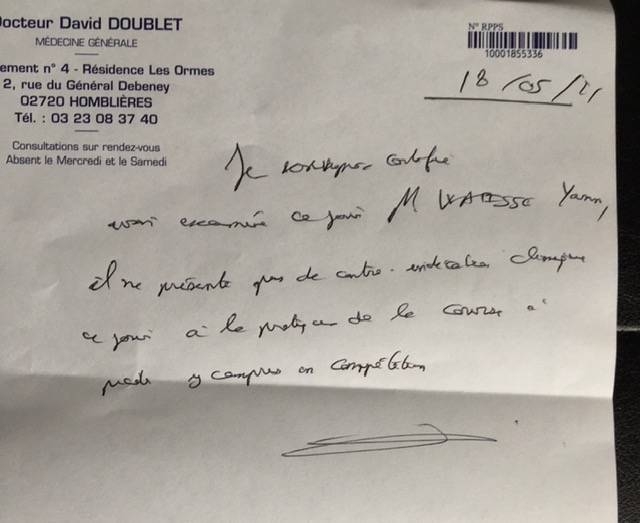 Docteur David DOUBLET
MÉDECINE GÉNÉRALE
ement n° 4 - Résidence Les Ormes
2, rue du Général Debeney
02720 HOMBLIÈRES
Tél. : 03 23 08 37 40
Consultations sur rendez-vous
Absent le Mercredi et le Samedi
N° RPPS
10001855336
18/05/21
Je soussigné certifie
avoir examiné ce jour M Yann,
il ne présente pas de contre-indication clinique
ce jour à la pratique de la course à
pied y compris en compétition